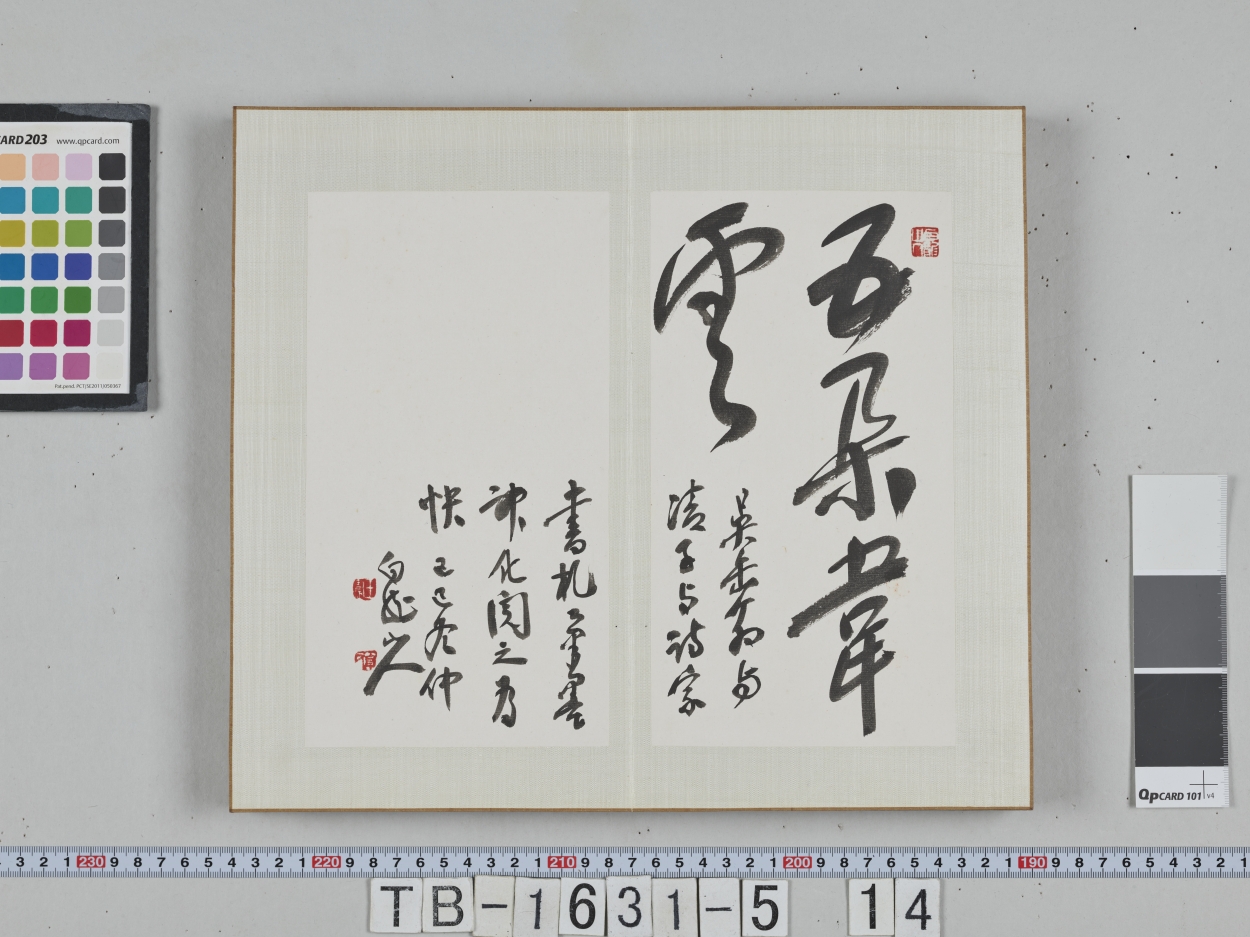 五朵華
雲
吳缶翁與
子与詩家
書札筆墨
神化閱之為
快 己巳冬仲
白龍山人
CARD 203 www.qpcard.com
Pat.pend. PCT(SE2011)/050367
QpCARD 101 v4
3 2 1 230 9 8 7 6 5 4 3 2 1 220 9 8 7 6 5 4 3 2 1 210 9 8 7 6 5 4 3 2 1 200 9 8 7 6 5 4 3 2 1 190 9 8 7 6 5 4 3 2 1
TB-1631-5 14